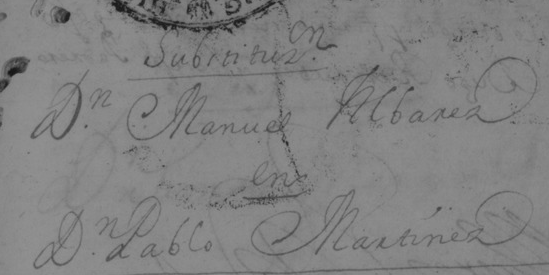 Substituz.ⁿ
D.ⁿ Manuel Albarez
en
D.ⁿ Pablo Martinez